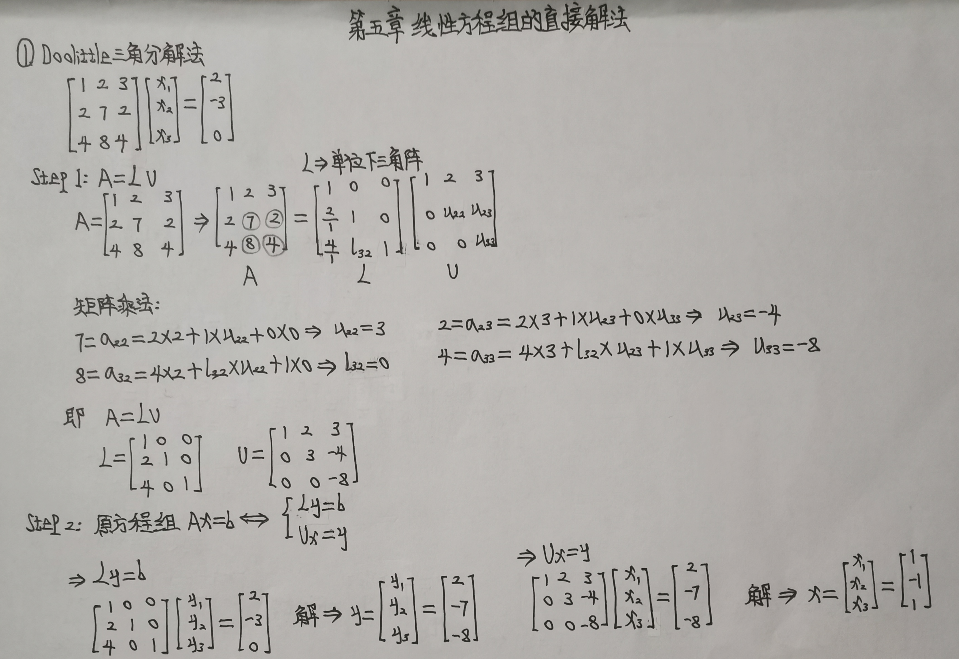 第五章 线性方程组的直接解法
① Doolittle三角分解法
[1 2 3; 2 7 2; 4 8 4][x₁; x₂; x₃]=[2; -3; 0]
L⇒单位下三角阵
Step 1: A=LU
A=[1 2 3; 2 7 2; 4 8 4] ⇒ [1 2 3; 2 ⑦ ②; 4 ⑧ ④] = [1 0 0; 2/1 1 0; 4/1 l₃₂ 1][1 2 3; 0 u₂₂ u₂₃; 0 0 u₃₃]
A L U
矩阵乘法:
7=a₂₂=2×2+1×u₂₂+0×0⇒ u₂₂=3 2=a₂₃=2×3+1×u₂₃+0×u₃₃⇒ u₂₃=-4
8=a₃₂=4×2+l₃₂×u₂₂+1×0⇒l₃₂=0 4=a₃₃=4×3+l₃₂×u₂₃+1×u₃₃⇒ u₃₃=-8
即 A=LU
L=[1 0 0; 2 1 0; 4 0 1] U=[1 2 3; 0 3 -4; 0 0 -8]
Step 2: 原方程组 Ax=b⇔{Ly=b; Ux=y
⇒Ly=b ⇒Ux=y
[1 0 0; 2 1 0; 4 0 1][y₁; y₂; y₃]=[2; -3; 0] 解⇒y=[y₁; y₂; y₃]=[2; -7; -8] [1 2 3; 0 3 -4; 0 0 -8][x₁; x₂; x₃]=[2; -7; -8] 解⇒x=[x₁; x₂; x₃]=[1; -1; 1]